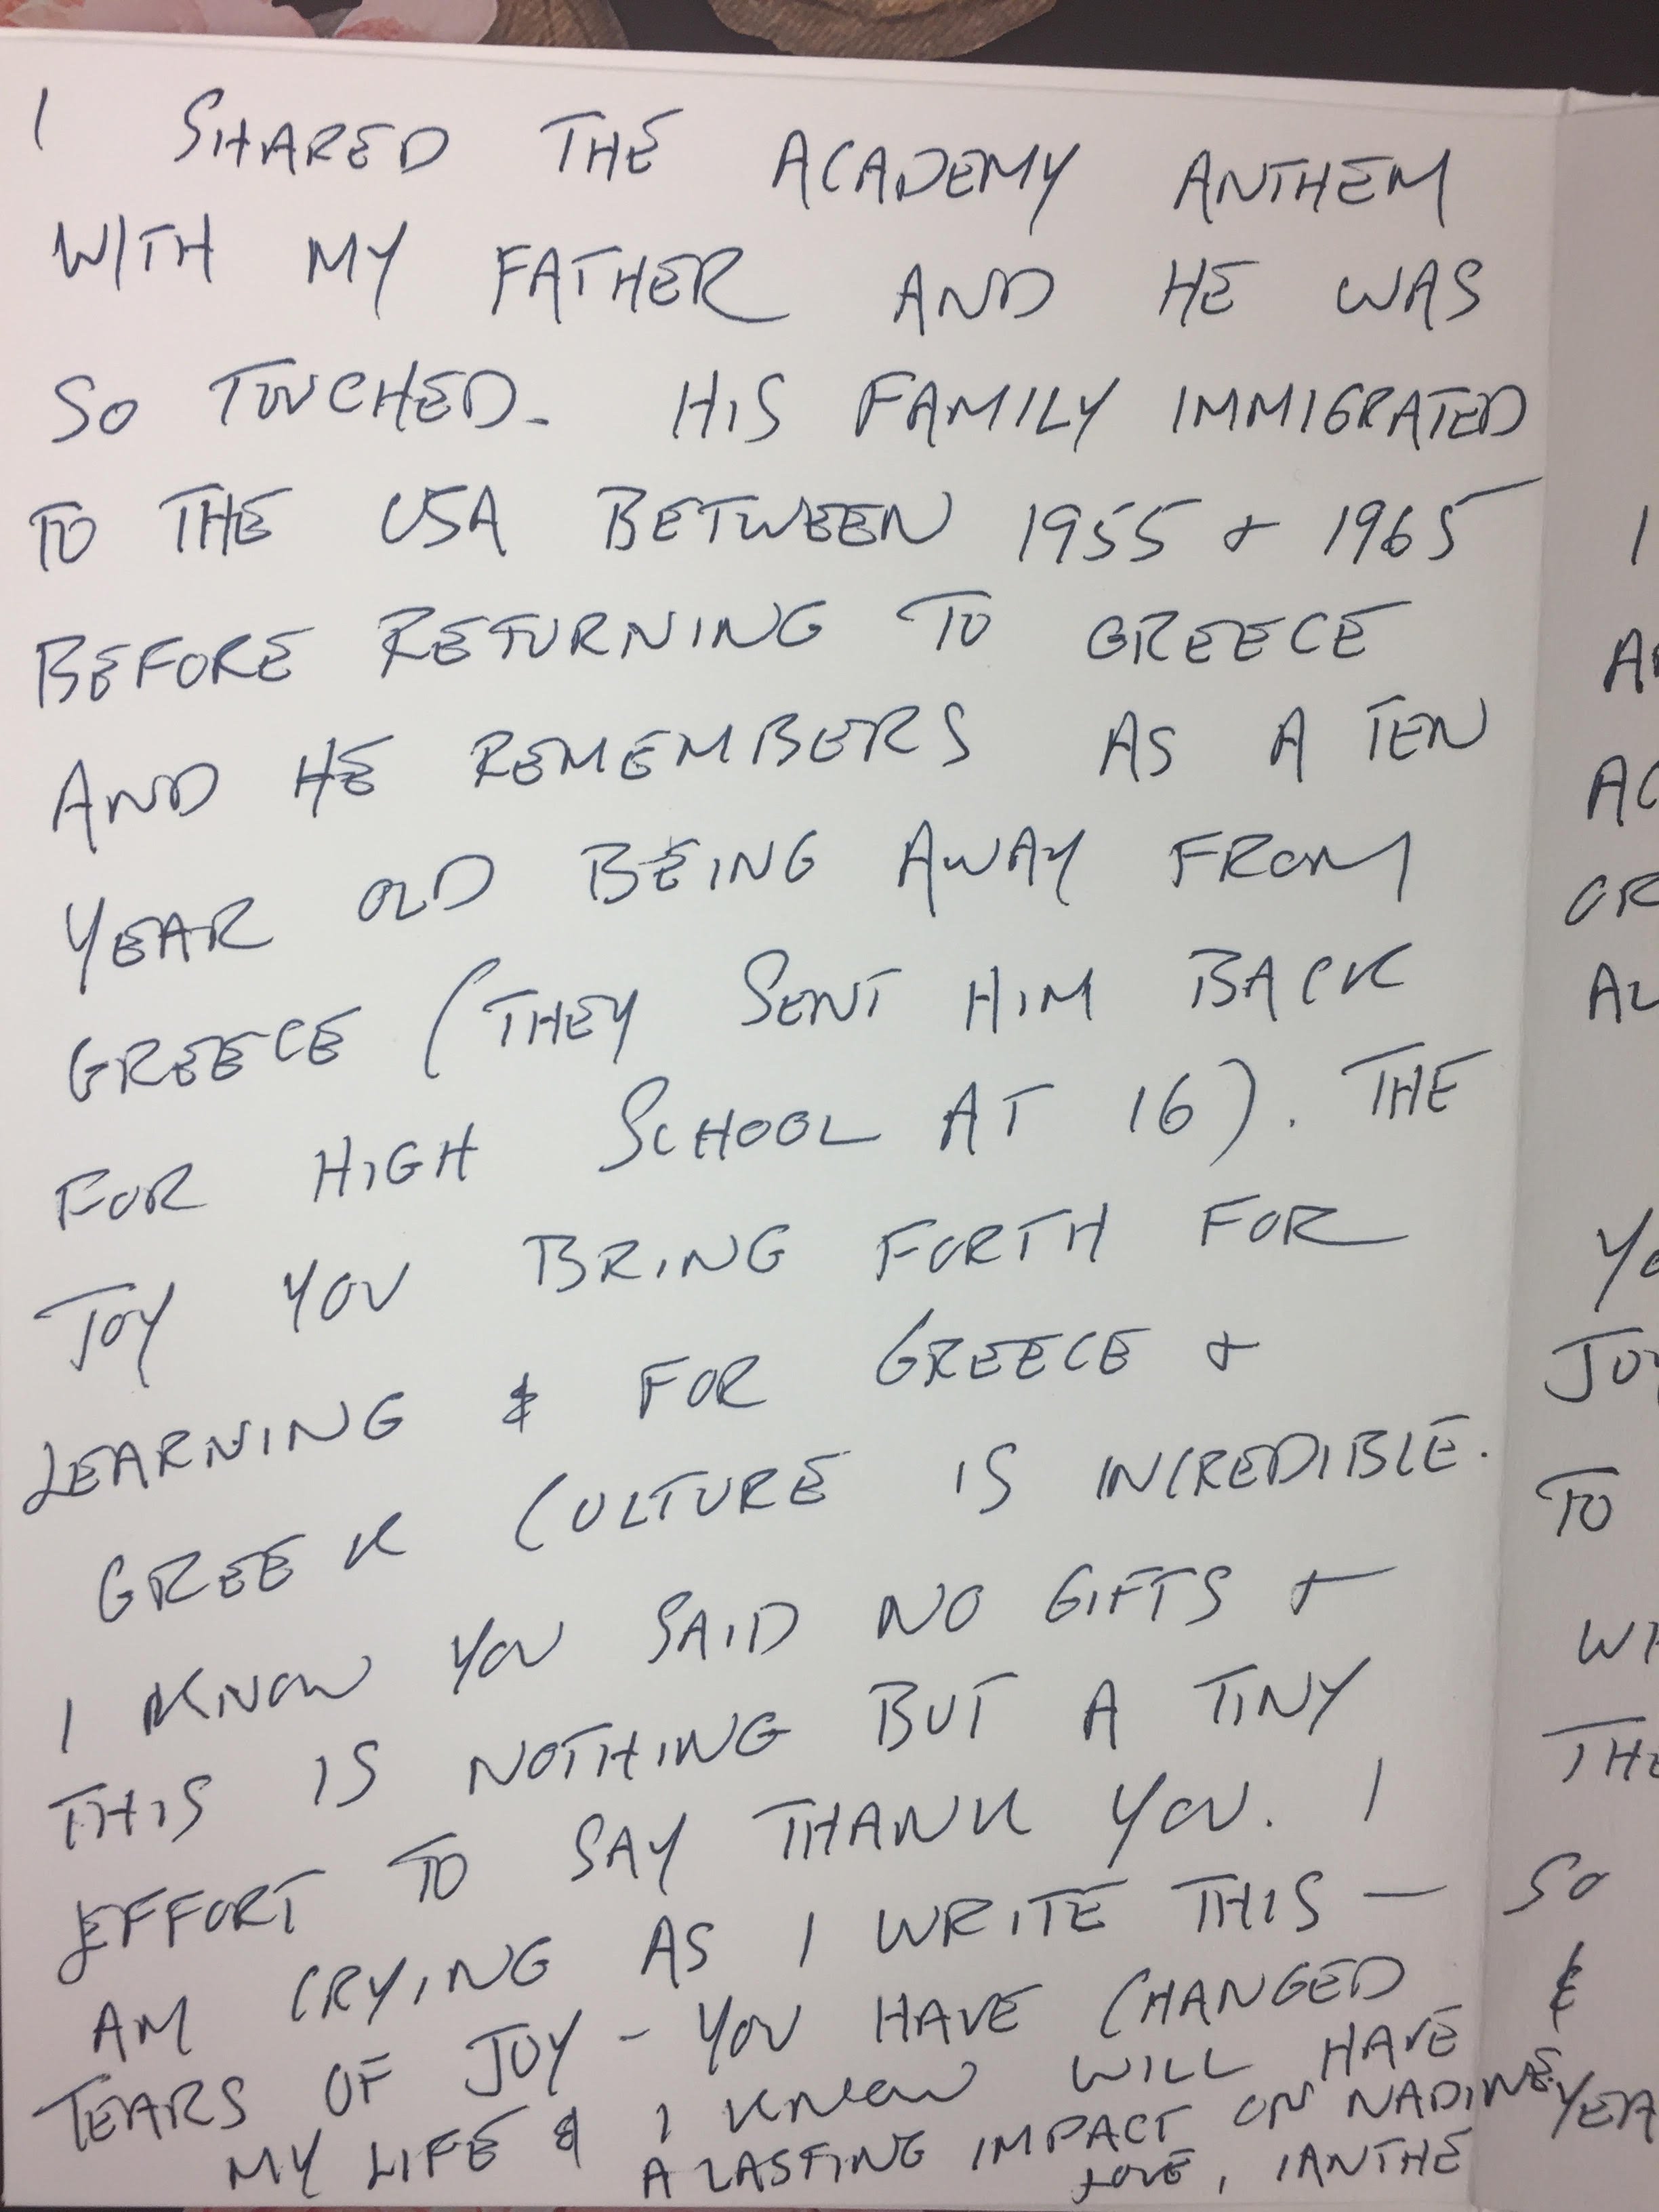 I SHARED THE ACADEMY ANTHEM
WITH MY FATHER AND HE WAS
SO TOUCHED. HIS FAMILY IMMIGRATED
TO THE USA BETWEEN 1955 & 1965
BEFORE RETURNING TO GREECE
AND HE REMEMBERS AS A TEN
YEAR OLD BEING AWAY FROM
GREECE (THEY SENT HIM BACK
FOR HIGH SCHOOL AT 16). THE
JOY YOU BRING FORTH FOR
LEARNING & FOR GREECE &
GREEK CULTURE IS INCREDIBLE.
I KNOW YOU SAID NO GIFTS &
THIS IS NOTHING BUT A TINY
EFFORT TO SAY THANK YOU. I
AM CRYING AS I WRITE THIS —
TEARS OF JOY - YOU HAVE CHANGED
MY LIFE & I KNOW WILL HAVE
A LASTING IMPACT ON NADINE.
LOVE, IANTHE
I
TO
SO
&